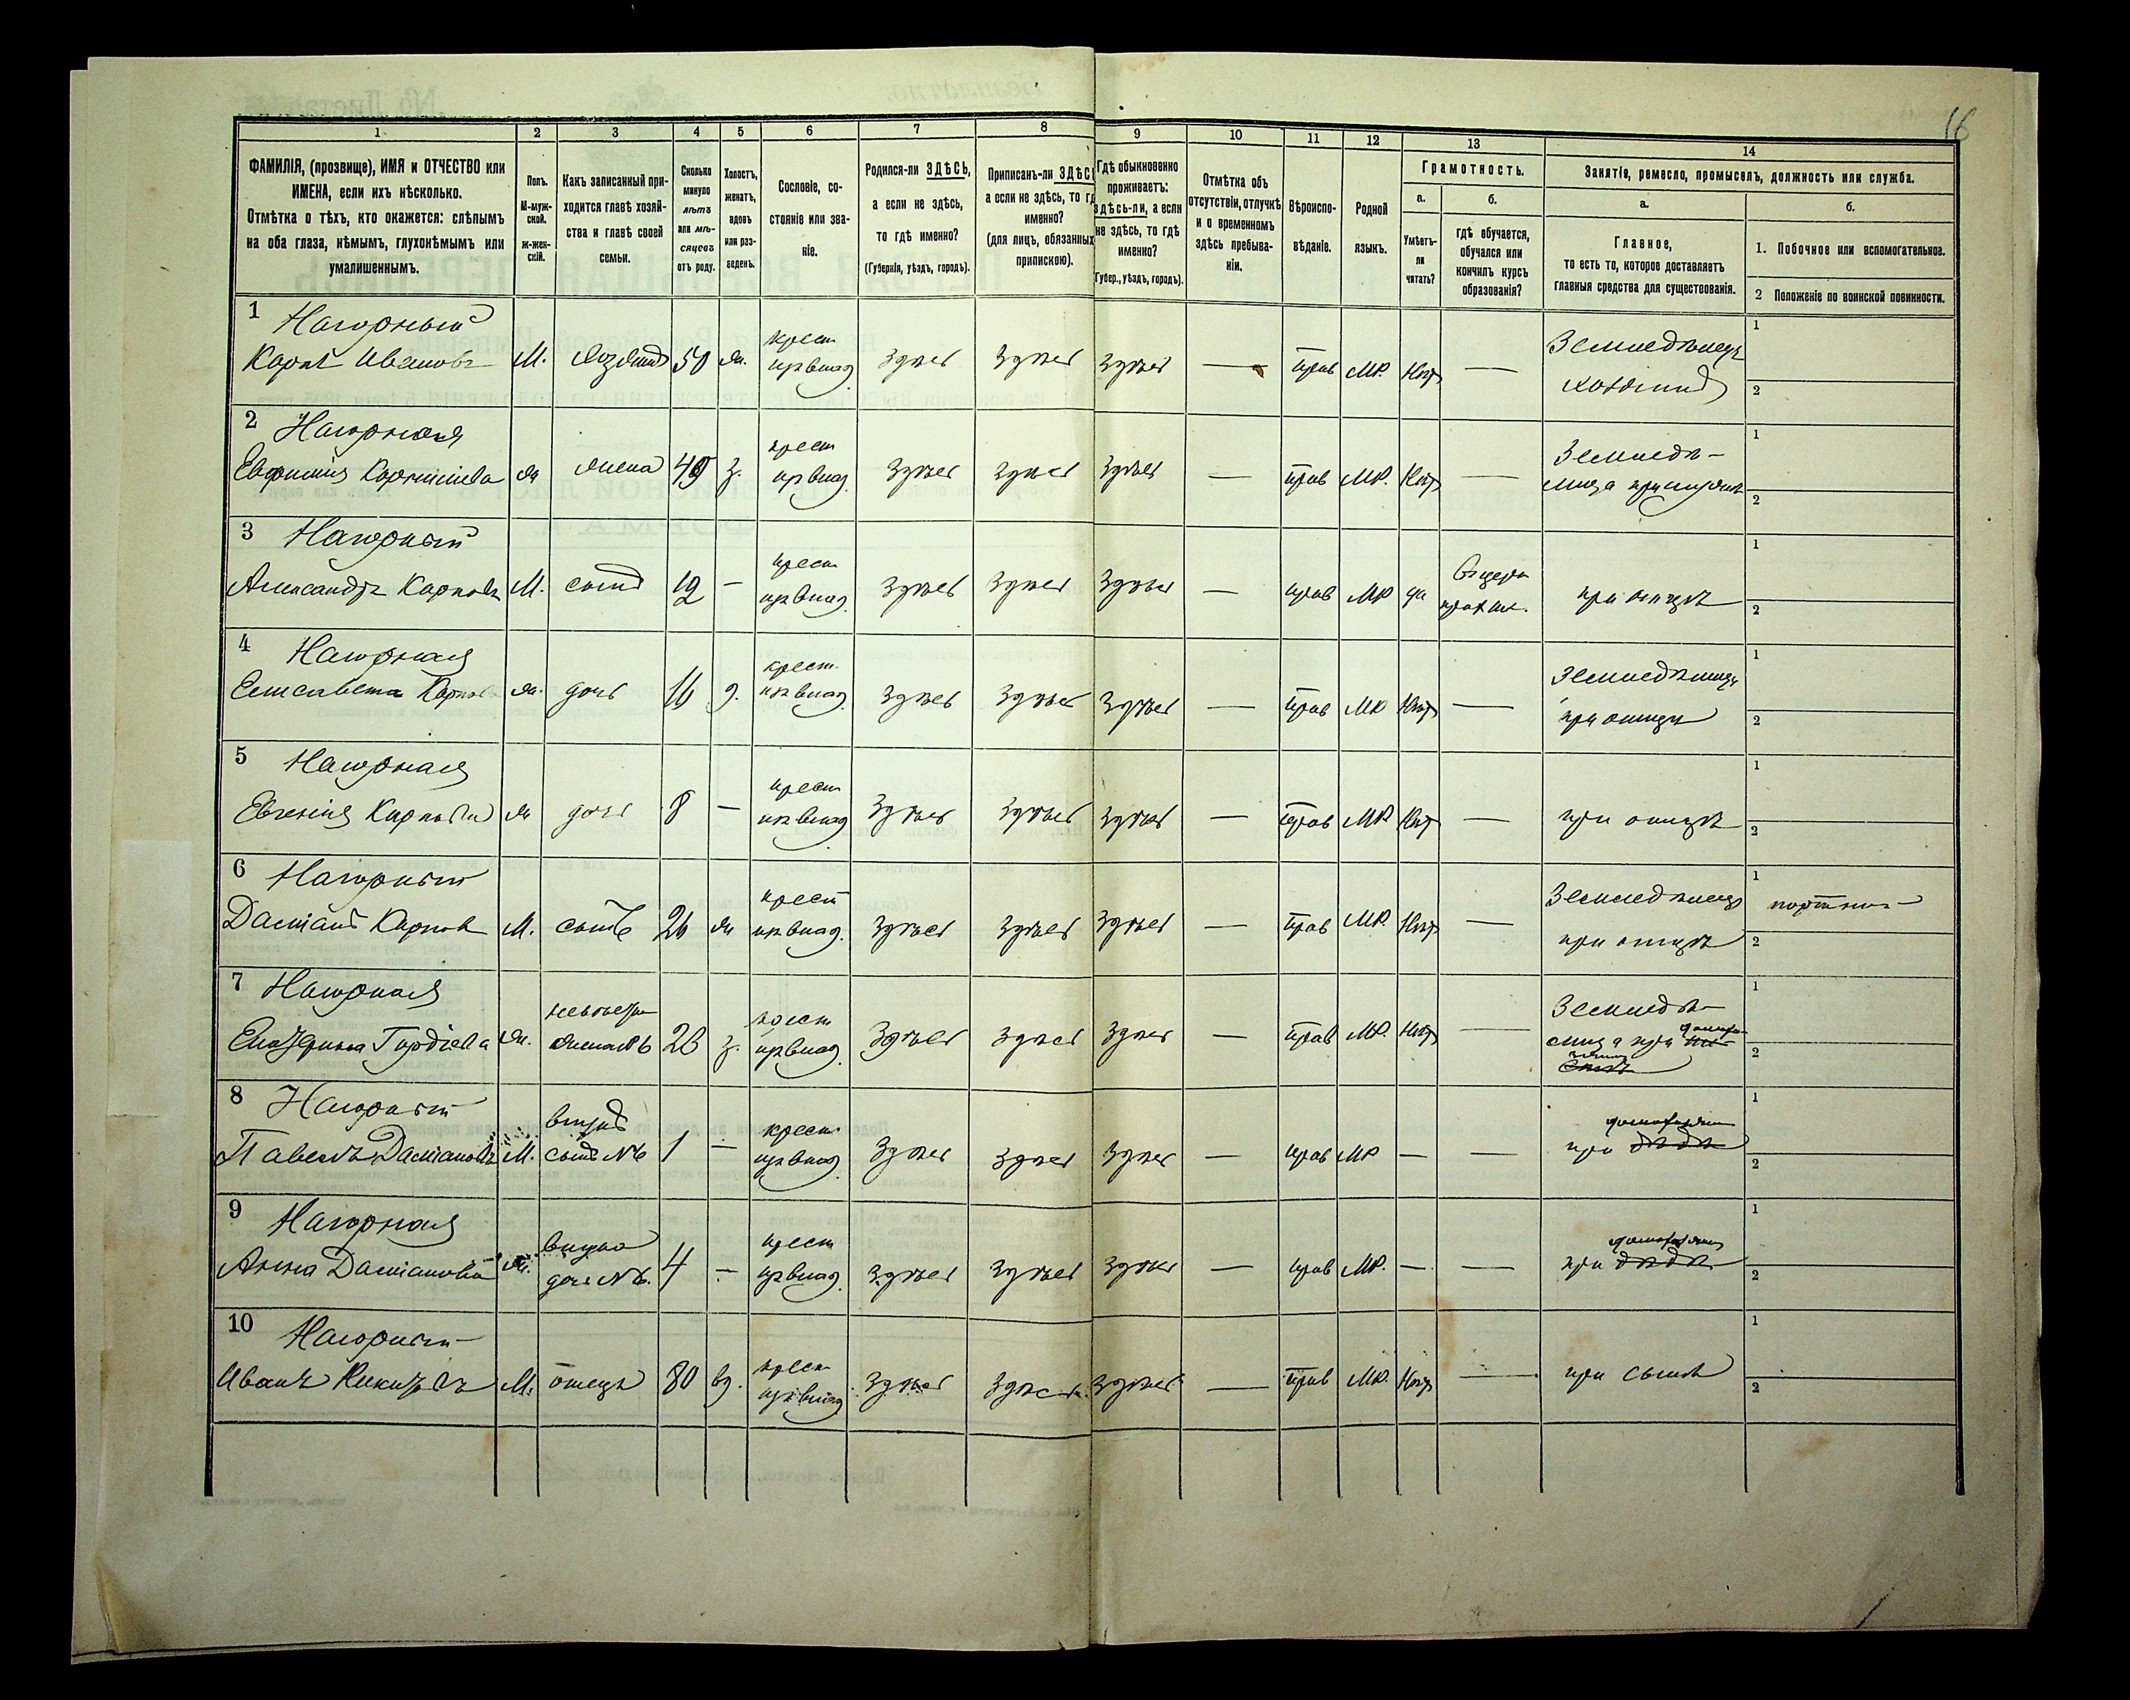 16
1 2 3 4 5 6 7 8 9 10 11 12 13 14
ФАМИЛІЯ, (прозвище), ИМЯ и ОТЧЕСТВО или ИМЕНА, если ихъ нѣсколько.
Отмѣтка о тѣхъ, кто окажется: слѣпымъ на оба глаза, нѣмымъ, глухонѣмымъ или умалишеннымъ.
Полъ.
М-муж-
ской.
ж-жен-
скій.
Какъ записанный при-
ходится главѣ хозяй-
ства и главѣ своей
семьи.
Сколько
минуло
лѣтъ
или мѣ-
сяцевъ
отъ роду.
Холостъ,
женатъ,
вдовъ
или раз-
веденъ.
Сословіе, со-
стояніе или зва-
ніе.
Родился-ли ЗДѢСЬ,
а если не здѣсь,
то гдѣ именно?
(Губернія, уѣздъ, городъ).
Приписанъ-ли ЗДѢС
а если не здѣсь, то гд
именно?
(для лицъ, обязанных
припискою).
Гдѣ обыкновенно
проживаетъ:
здѣсь-ли, а если
не здѣсь, то гдѣ
именно?
Губер., уѣздъ, городъ).
Отмѣтка объ
отсутствіи, отлучкѣ
и о временномъ
здѣсь пребыва-
ніи.
Вѣроиспо-
вѣданіе.
Родной
языкъ.
Грамотность.
а.
Умѣетъ-
ли
читать?
б.
гдѣ обучается,
обучался или
кончилъ курсъ
образованія?
Занятіе, ремесло, промыселъ, должность или служба.
а.
Главное,
то есть то, которое доставляетъ
главныя средства для существованія.
б.
1. Побочное или вспомогательное.
2 Положеніе по воинской повинности.
1 Нагорный
Карпъ Ивановъ М. хозяинъ 50 ж. крест. здѣсь здѣсь здѣсь — прав МР. нѣтъ — Земледѣлецъ
хозяинъ
2 Нагорная
Евфимія ж жена 49 з. крест здѣсь здѣсь здѣсь — прав МР. нѣтъ — Земледѣ-
3 Нагорный
Александръ Карповъ М. сынъ 12 — крест здѣсь здѣсь здѣсь — прав МР да при отцѣ
4 Нагорная
Елисавета Карпов ж. дочь 16 д. крест. здѣсь здѣсь здѣсь — прав МР нѣтъ — Земледѣлецъ
при отцѣ
5 Нагорная
Евгенія Карпова ж дочь 8 — крест здѣсь здѣсь здѣсь — прав МР нѣтъ — при отцѣ
6 Нагорный
Даміанъ Карповъ М. сынъ 26 ж крест здѣсь здѣсь здѣсь — прав МР. нѣтъ — Земледѣлецъ
при отцѣ
7 Нагорная
Гордіева ж. невѣстка
жена №6 26 з. крест здѣсь здѣсь здѣсь — прав МР. нѣтъ — Земледѣ-
8 Нагорный
Павелъ Даміановъ М. внукъ
сынъ №6 1 — крест здѣсь здѣсь здѣсь — прав МР — — при дѣдѣ
9 Нагорная
Анна Даміанова ж. внука
дочь №6. 4 — крест здѣсь здѣсь здѣсь — прав МР. — — при дѣдѣ
10 Нагорный
Иванъ М. отецъ 80 вд. крест здѣсь здѣсь здѣсь — прав МР. нѣтъ — при сынѣ